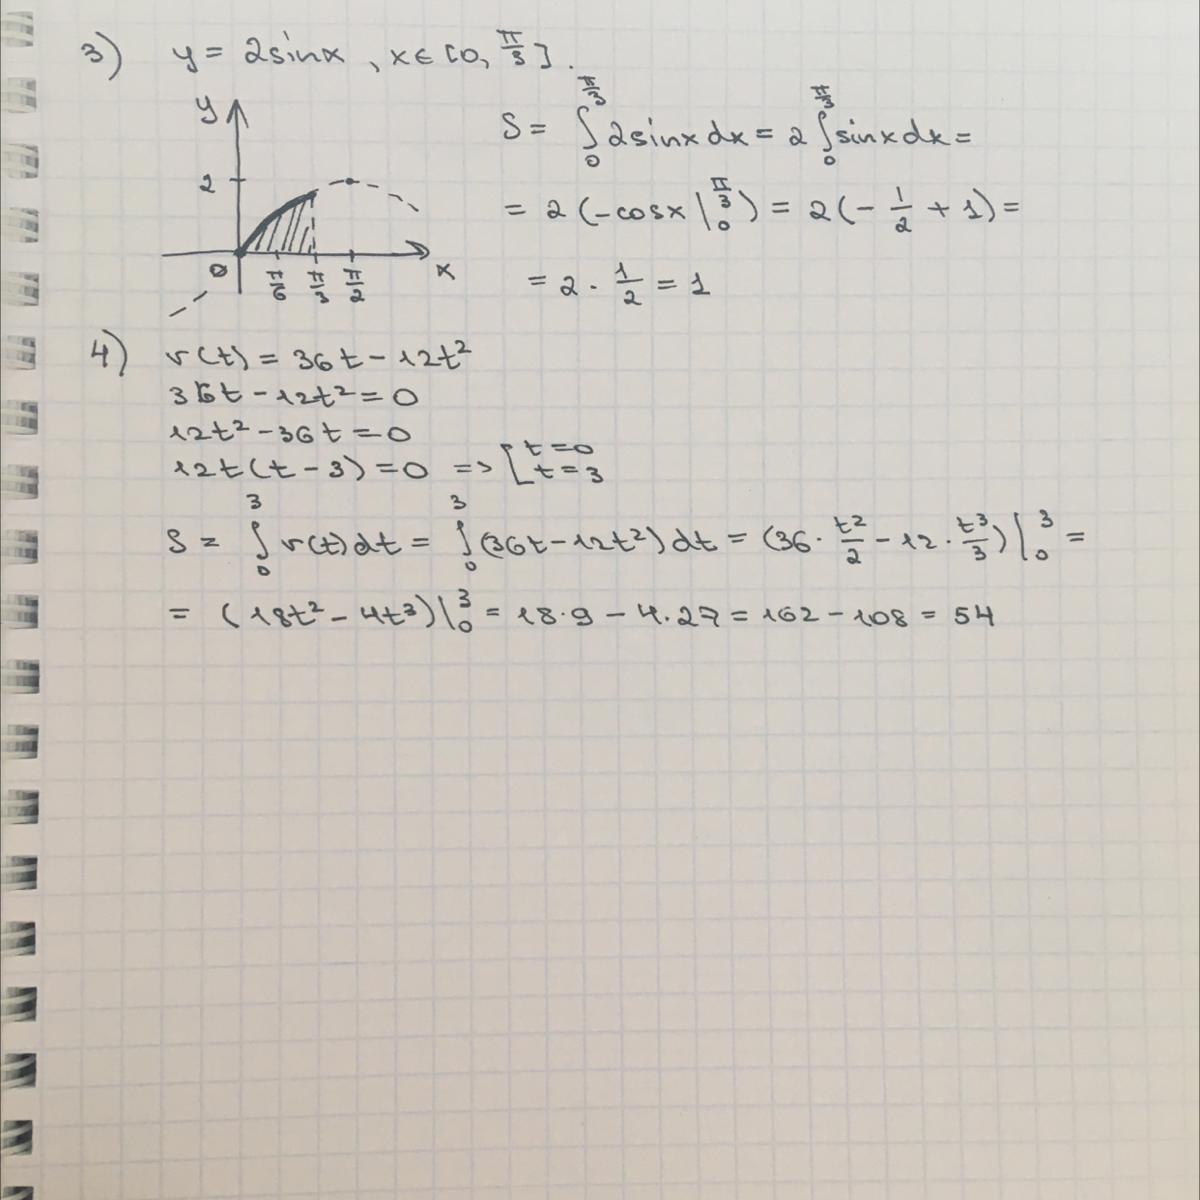 3) y = 2sinx , x ∈ [0, π/3].
y
2
0 π/6 π/3 π/2 x
S = ∫₀^{π/3} 2sinx dx = 2 ∫₀^{π/3} sinx dx =
= 2 (-cosx |₀^{π/3}) = 2(- 1/2 + 1) =
= 2 · 1/2 = 1
4) v(t) = 36t - 12t²
36t - 12t² = 0
12t² - 36t = 0
12t(t - 3) = 0 => [ t = 0
t = 3
S = ∫₀³ v(t)dt = ∫₀³ (36t - 12t²)dt = (36 · t²/2 - 12 · t³/3)|₀³ =
= (18t² - 4t³)|₀³ = 18·9 - 4·27 = 162 - 108 = 54